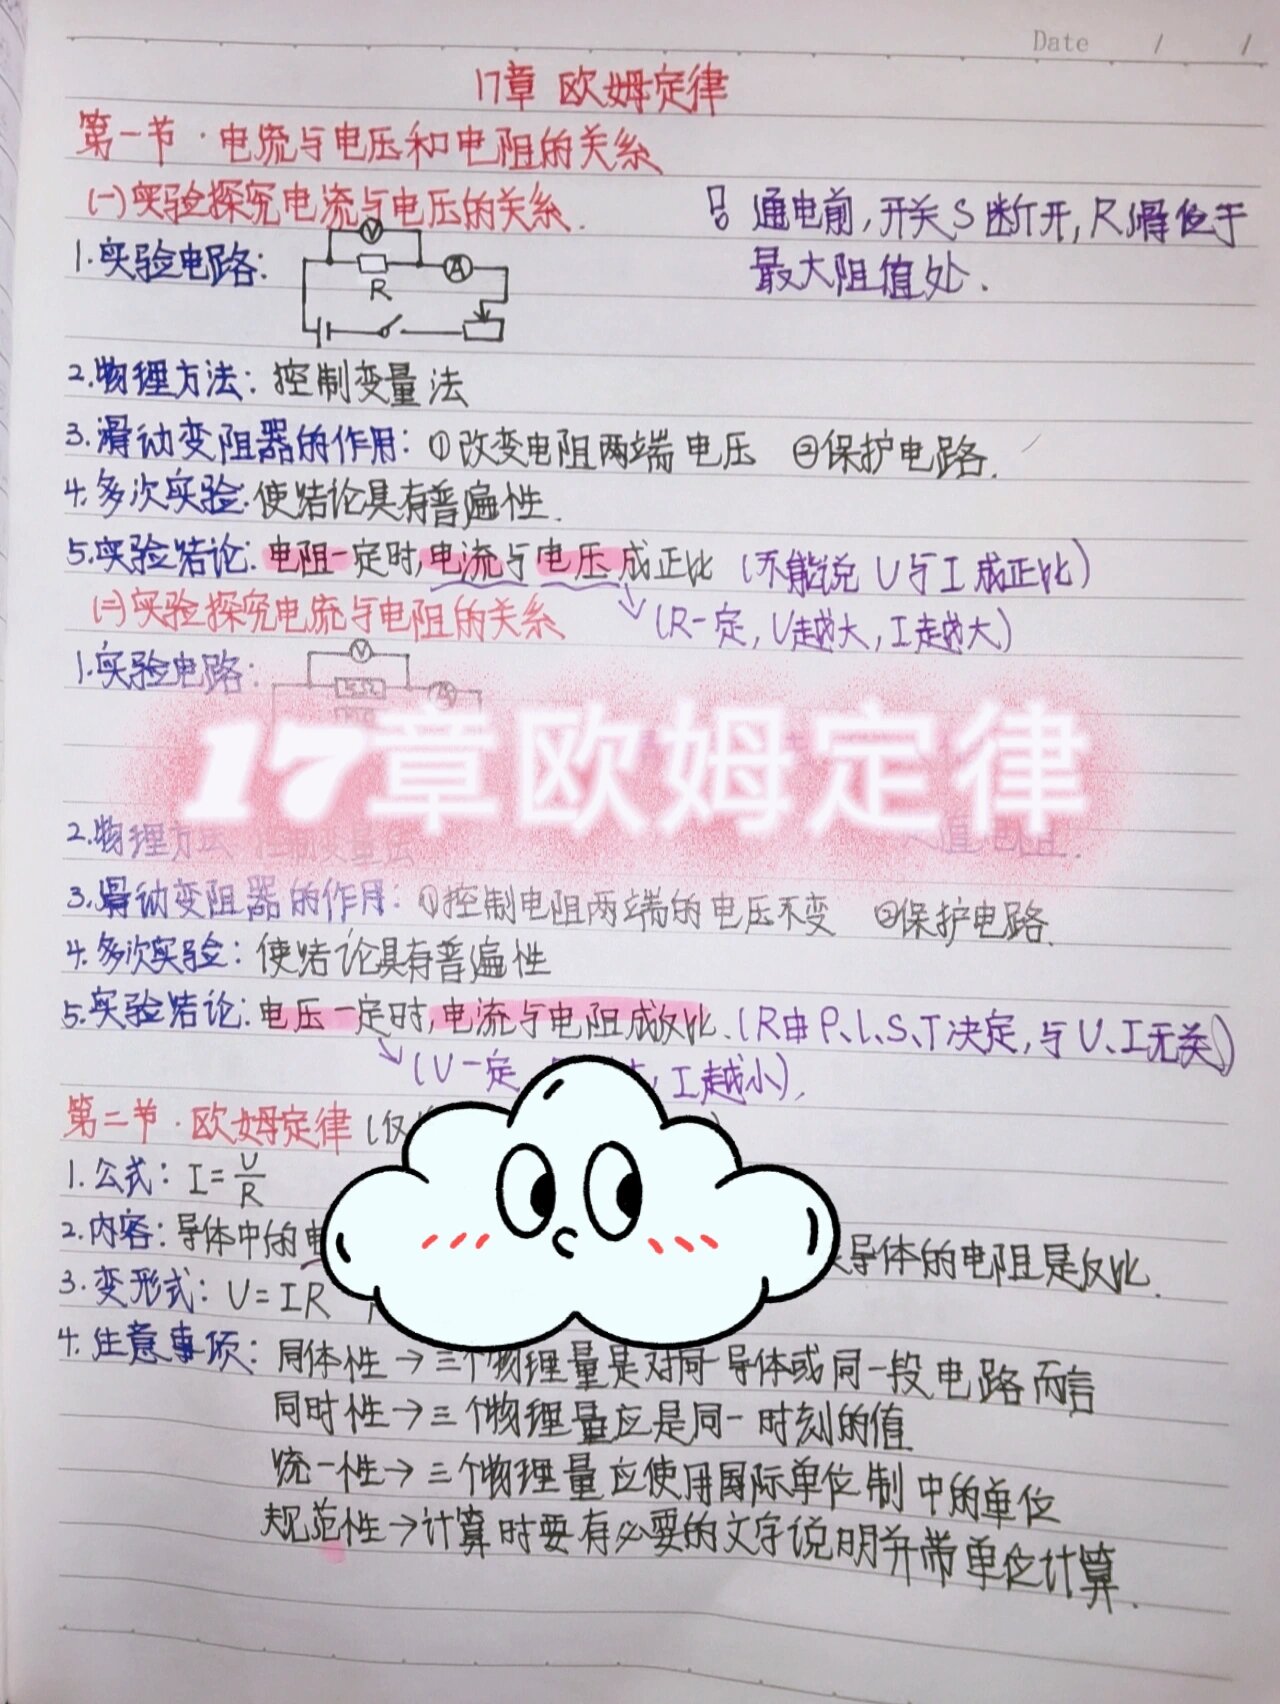 Date / /
17章 欧姆定律
第一节·电流与电压和电阻的关系
(一)实验探究电流与电压的关系.
通电前,开关S断开,R滑位于
最大阻值处.
1.实验电路:
V
A
R
2.物理方法:控制变量法
3.滑动变阻器的作用:①改变电阻两端电压 ②保护电路.
4.多次实验:使结论具有普遍性.
5.实验结论:电阻一定时,电流与电压成正比(不能说U与I成正比)
(R一定,U越大,I越大)
(二)实验探究电流与电阻的关系
1.实验电路:
V
5Ω
A
17章欧姆定律
2.物理方法 控制变量法
值电阻.
3.滑动变阻器的作用:①控制电阻两端的电压不变 ②保护电路.
4.多次实验:使结论具有普遍性
5.实验结论:电压一定时,电流与电阻成反比.(R由ρ、l、S、T决定,与U、I无关)
(U一定, ,I越小).
第二节·欧姆定律(仅
1.公式:I=U/R
2.内容:导体中的 导体的电阻是反比.
3.变形式:U=IR
4.注意事项:同体性→三个物理量是对同一导体或同一段电路而言
同时性→三个物理量应是同一时刻的值
统一性→三个物理量应使用国际单位制中的单位
规范性→计算时要有必要的文字说明并带单位计算.